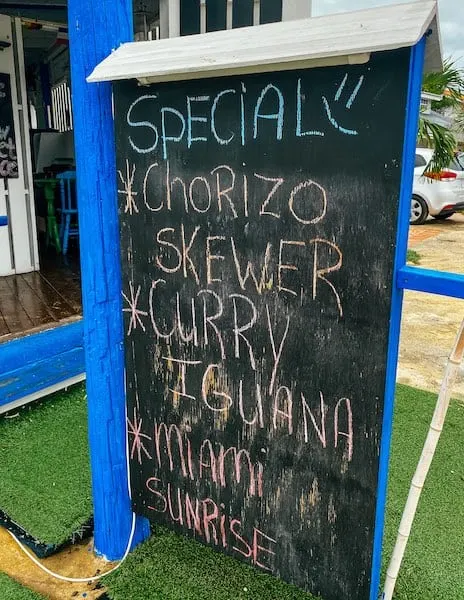 SPECIAL
*CHORIZO
SKEWER
*CURRY
IGUANA
*MIAMI
SUNRISE